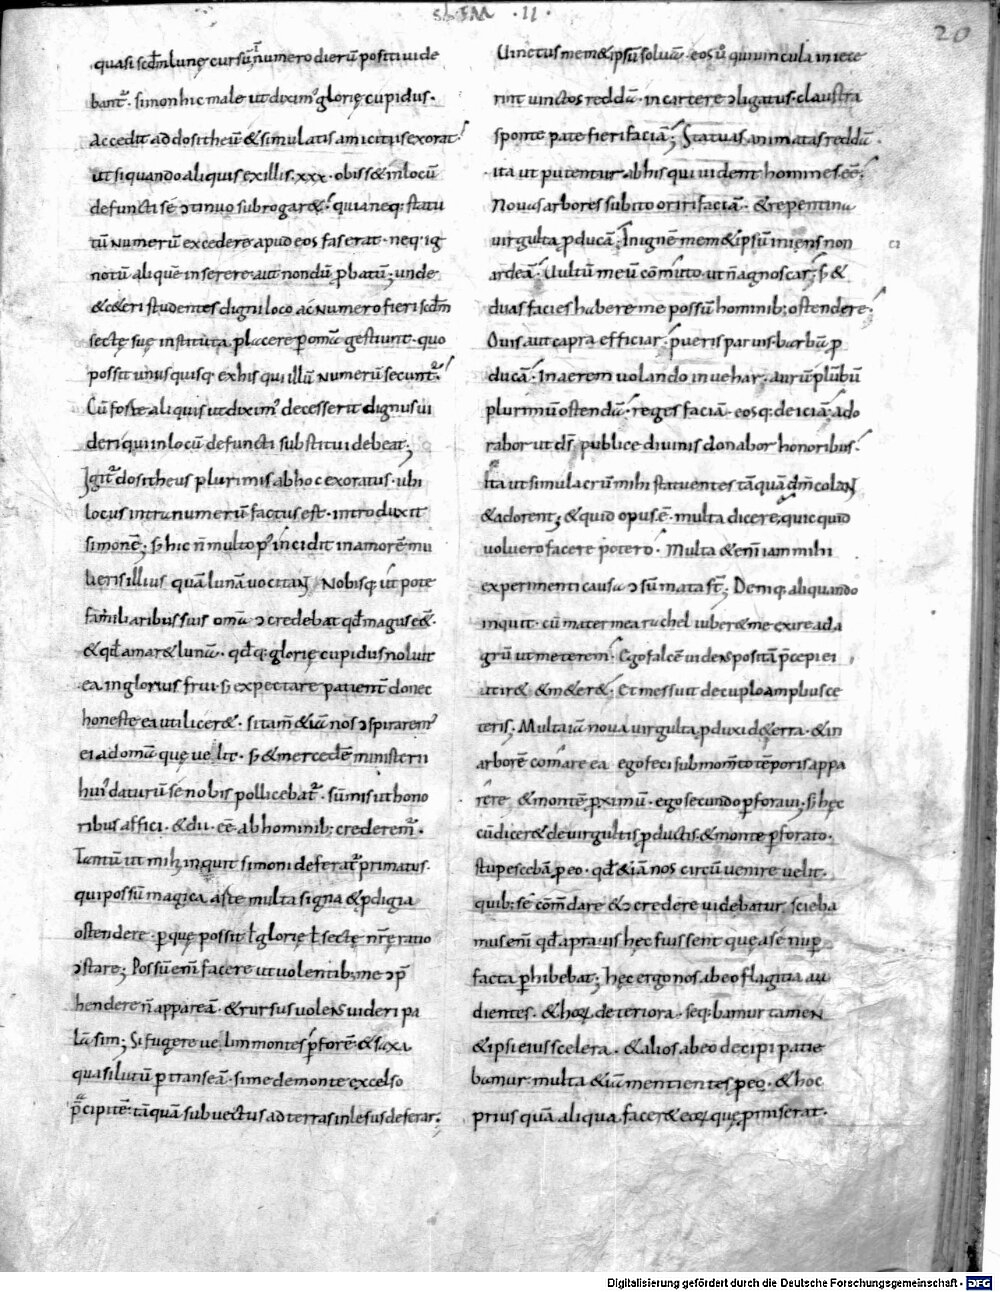 · II ·
20
quasi scdm lunę cursū Īnumero dierū positi uide
bant᷑. simon hic male ut diximꝰ glorię cupidus.
accedit ad dositheū & simulatis amicitiis exorat.
ut siquando aliquis ex illis. xxx. obiss& in locū
defuncti sé ↄtinuo subrogar&. quia neq; statu
tū numerū excedere apud eos fas erat. neq; ig
notū aliquē inserere aut nondū ꝓbatū; unde
& c&eri studentes digni loco ac numero fieri scdm
sectę suę instituta. placere ꝑ omā gestiunt. quo
possit unusquisq. ex his qui illū numerū secunt᷑.
Cū foste aliquis ut diximꝰ decesserit dignus ui
deri qui in locū defuncti substitui debeat;
Igit᷑ dositheus plurimis ab hoc exoratus. ubi
locus intra numerū factus est. introduxit
simonē; s; hic n̄ multo p incidit in amorē mu
lieris illius quā lunā uocitant Nobisq; ut pote
familiaribus suis omā ↄcredebat qđ magus e&.
& qđ amar& lunā. qđq; glorię cupidus noluit
ea inglorius frui. s; expectare patient᷑ donec
honeste ea uti licer&. si tam̄ & iā nos ↄspiraremꝰ
ei ad omā quę uellet. s; & mercedē ministerii
huiꝰ daturū se nobis pollicebat᷑. sūmis ut hono
ribus affici. & dii. eē ab hominib; crederem᷑.
Tantū ut mihi inquit simoni deferat᷑ primatus.
qui possū magica aste multa signa & ꝓdigia
ostendere. ꝑ quę possit ł glorię ł sectę nrę ratio
ↄstare; Possū enī facere ut uolentib; me ↄp
hendere n̄ appareā. & rursus uolens uideri pa
lā sim; Si fugere uelim montes ꝑforē & saxa
quasi lutū ꝑtranseā. si me de monte excelso
p̄cipitē. tāquā subuectus ad terras inlesus deferar;
Uinctus mem&ipsū soluā. eos ů qui uincula iniece
rint uinctos reddā. in carcere ↄligatus. claustra
sponte patefieri faciā; Statuas animatas reddā.
ita ut putentur ab his qui uident homines eē;
Nouas arbores subito oriri faciā. & repentina
uirgulta ꝓducā; In ignē mem&ipsū iniens non
ardeā. Uultū meū cōmuto. ut n̄ agnoscar; s; &
duas facies habere me possū hominib; ostendere.
Ouis aut capra efficiar. pueris paruis barbā ꝓ
ducā. In aerem uolando inuehar. aurū plūbū
plurimū ostendā. reges faciā. eosq; deiciā. ado
rabor ut ds̄ publice diuinis donabor honoribus.
Ita ut simulacrū mihi statuentes tāquā dm̄ colant
& adorent; & quid opus.ē. multa dicere. quicquid
uoluero facere potero. Multa & enī iam mihi
experimenti causa ↄsūmata st̄; Deniq. aliquando
inquit. cū mater mea rachel iuber& me exire ad a
grū ut meterem. Ego falcē uidens positā p̄cepi ei
ut ir& & m&er&. Et messuit decuplo amplius ce
teris. Multa iā noua uirgulta ꝓduxi de terra. & in
arborē comare ea ego feci sub momto tēporis appa
rere & montē ꝓximū. ego secundo ꝑforaui; s; hęc
cū dicer& de uirgultis ꝓductis. & monte ꝑforato.
stupescebā ꝑ eo. qđ & iā nos circū uenire uelit.
quib; se cōmdare & ↄcredere uidebatur. scieba
mus enī qđ a prauis hęc fuissent quę a se nup
facta ꝑhibebat; hęc ergo nos ab eo flagitia au
dientes. & hoꝝ deteriora. seq; bamur tamen
& ipsi eius scelera. & alios ab eo decipi patie
bamur. multa & iā mentientes ꝑ eo. & hoc
prius quā aliqua facer& eoꝝ quę ꝓmiserat.
Digitalisierung gefördert durch die Deutsche Forschungsgemeinschaft - DFG